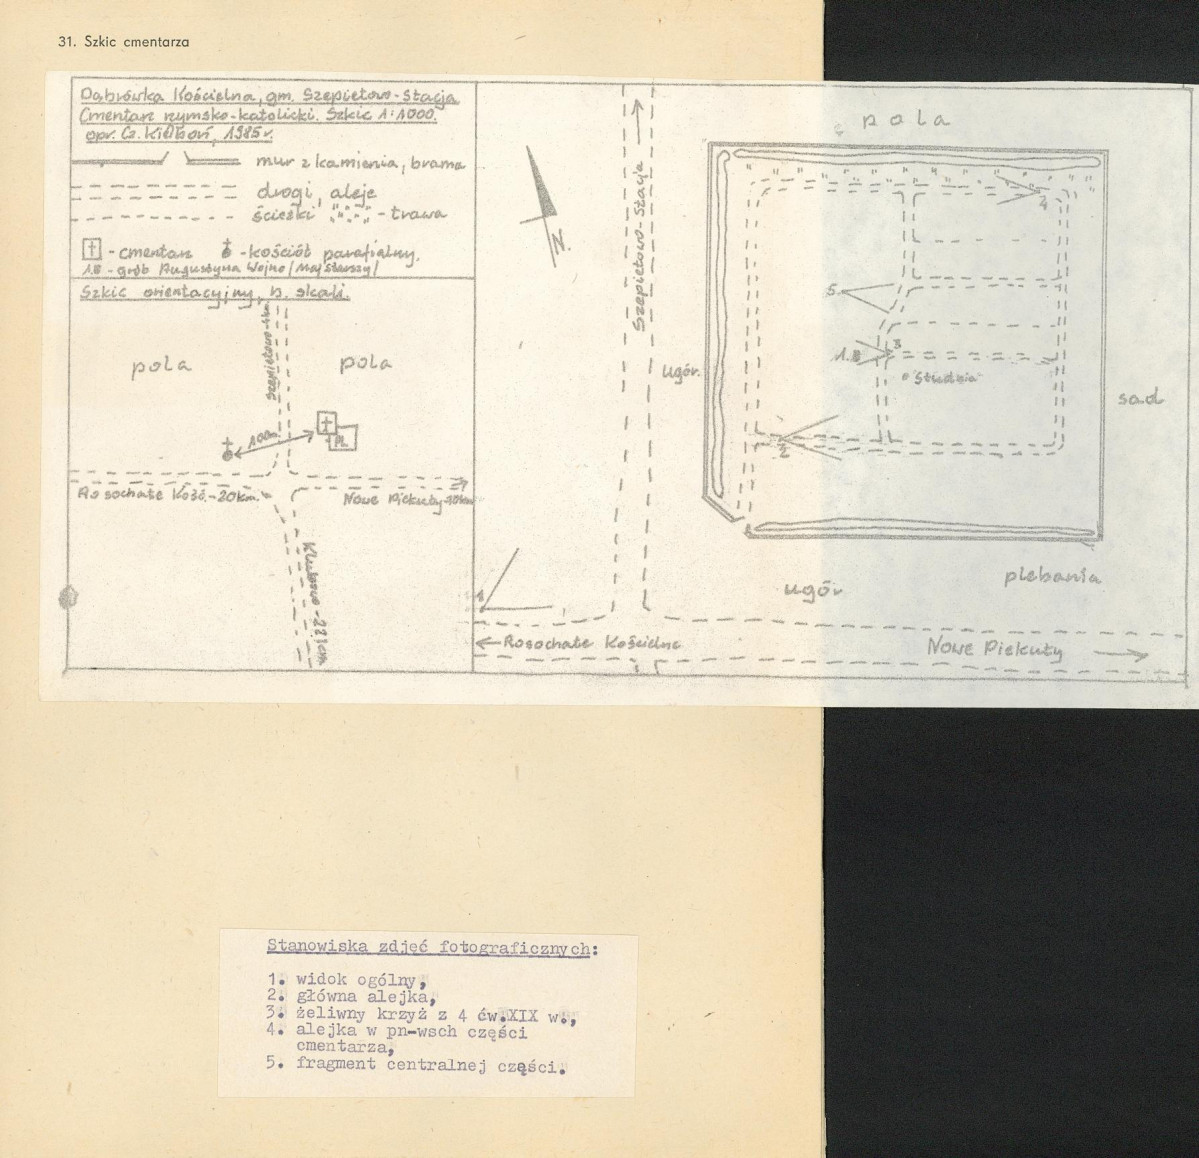 31. Szkic cmentarza
Dąbrówka Kościelna, gm. Szepietowo-Stacja
Cmentarz rzymsko-katolicki. Szkic 1:1000.
opr. Cz. 1985 r.
mur z kamienia, brama
drogi, aleje
ścieżki - trawa
- cmentarz - kościół parafialny.
1.B - grób Augustyna Wojno /Maj Starszy/
Szkic orientacyjny, b. skali.
Szepietowo
pola
pola
100m
PL.
Rosochate Kość.-20km.
Nowe Piekuty
Klukowo - 22 km.
pola
Szepietowo-Stacja
N
4
5.
ugór.
1.B
3
Studnia
sad
2
1
plebania
ugór
Rosochate Kościelne
Nowe Piekuty
Stanowiska zdjęć fotograficznych:
1. widok ogólny,
2. główna alejka,
3. żeliwny krzyż z 4 ćw.XIX w.,
4. alejka w pn-wsch części
cmentarza,
5. fragment centralnej części.